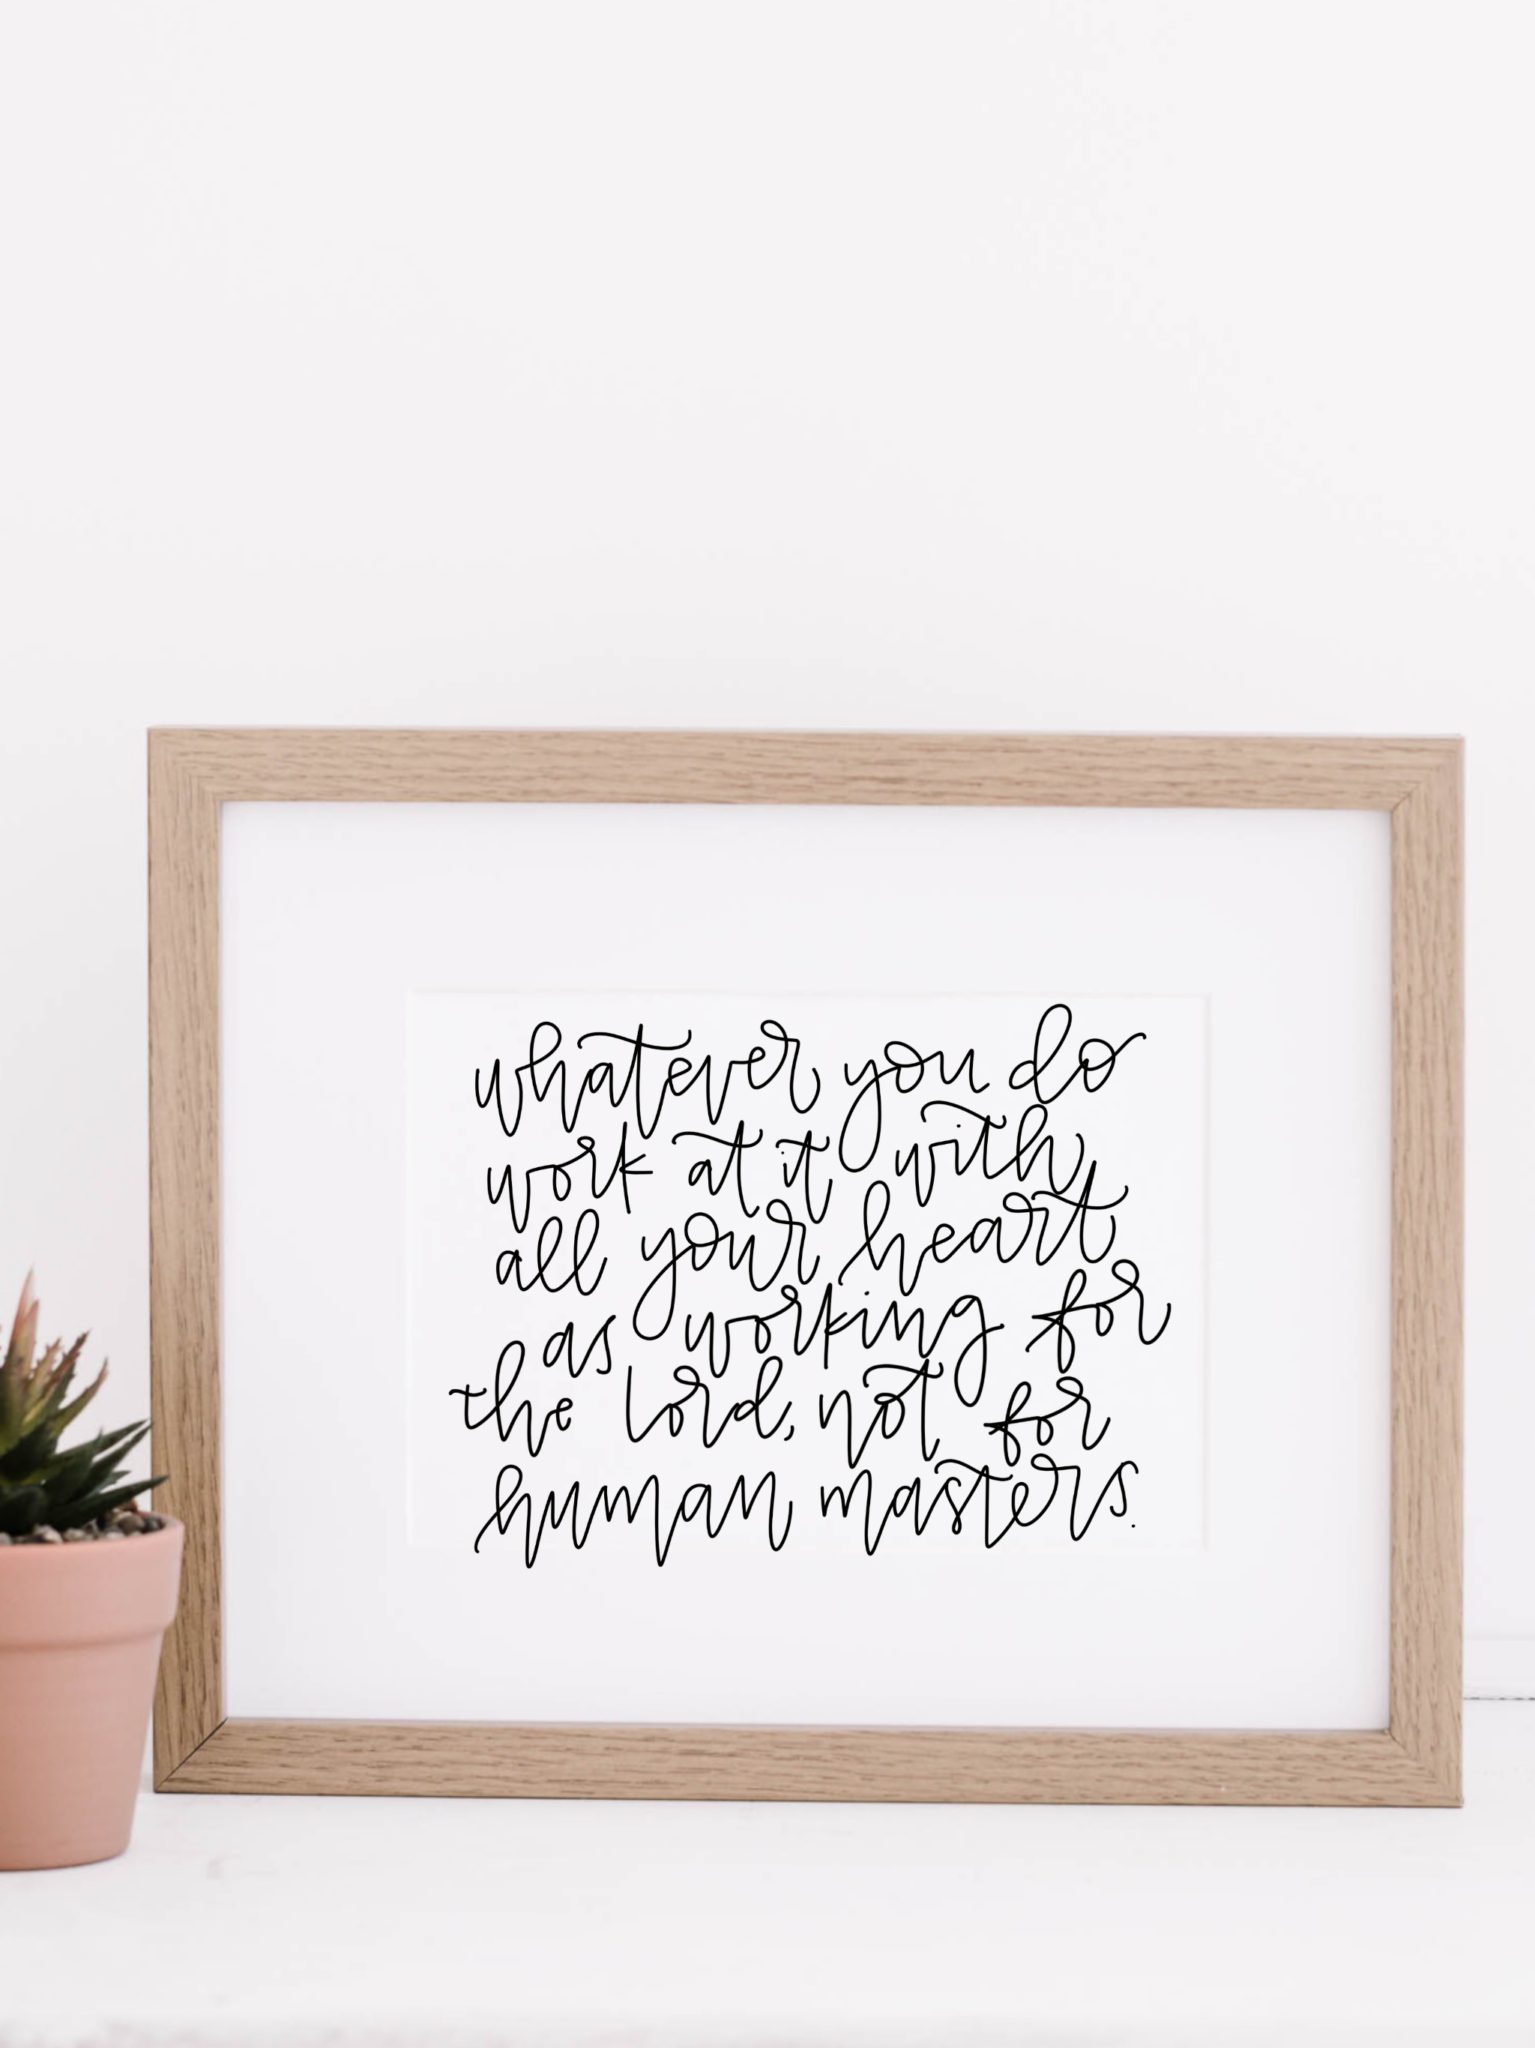 whatever you do
work at it with
all your heart
as working for
the lord, not for
human masters.